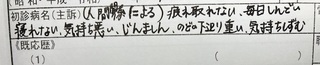 初診病名(主訴)(人間関係による)疲れ取れない、毎日しんどい
寝れない、気持ち悪い、じんましん、のど下辺り重い、気持ちしずむ
《既応歴》
(1) (